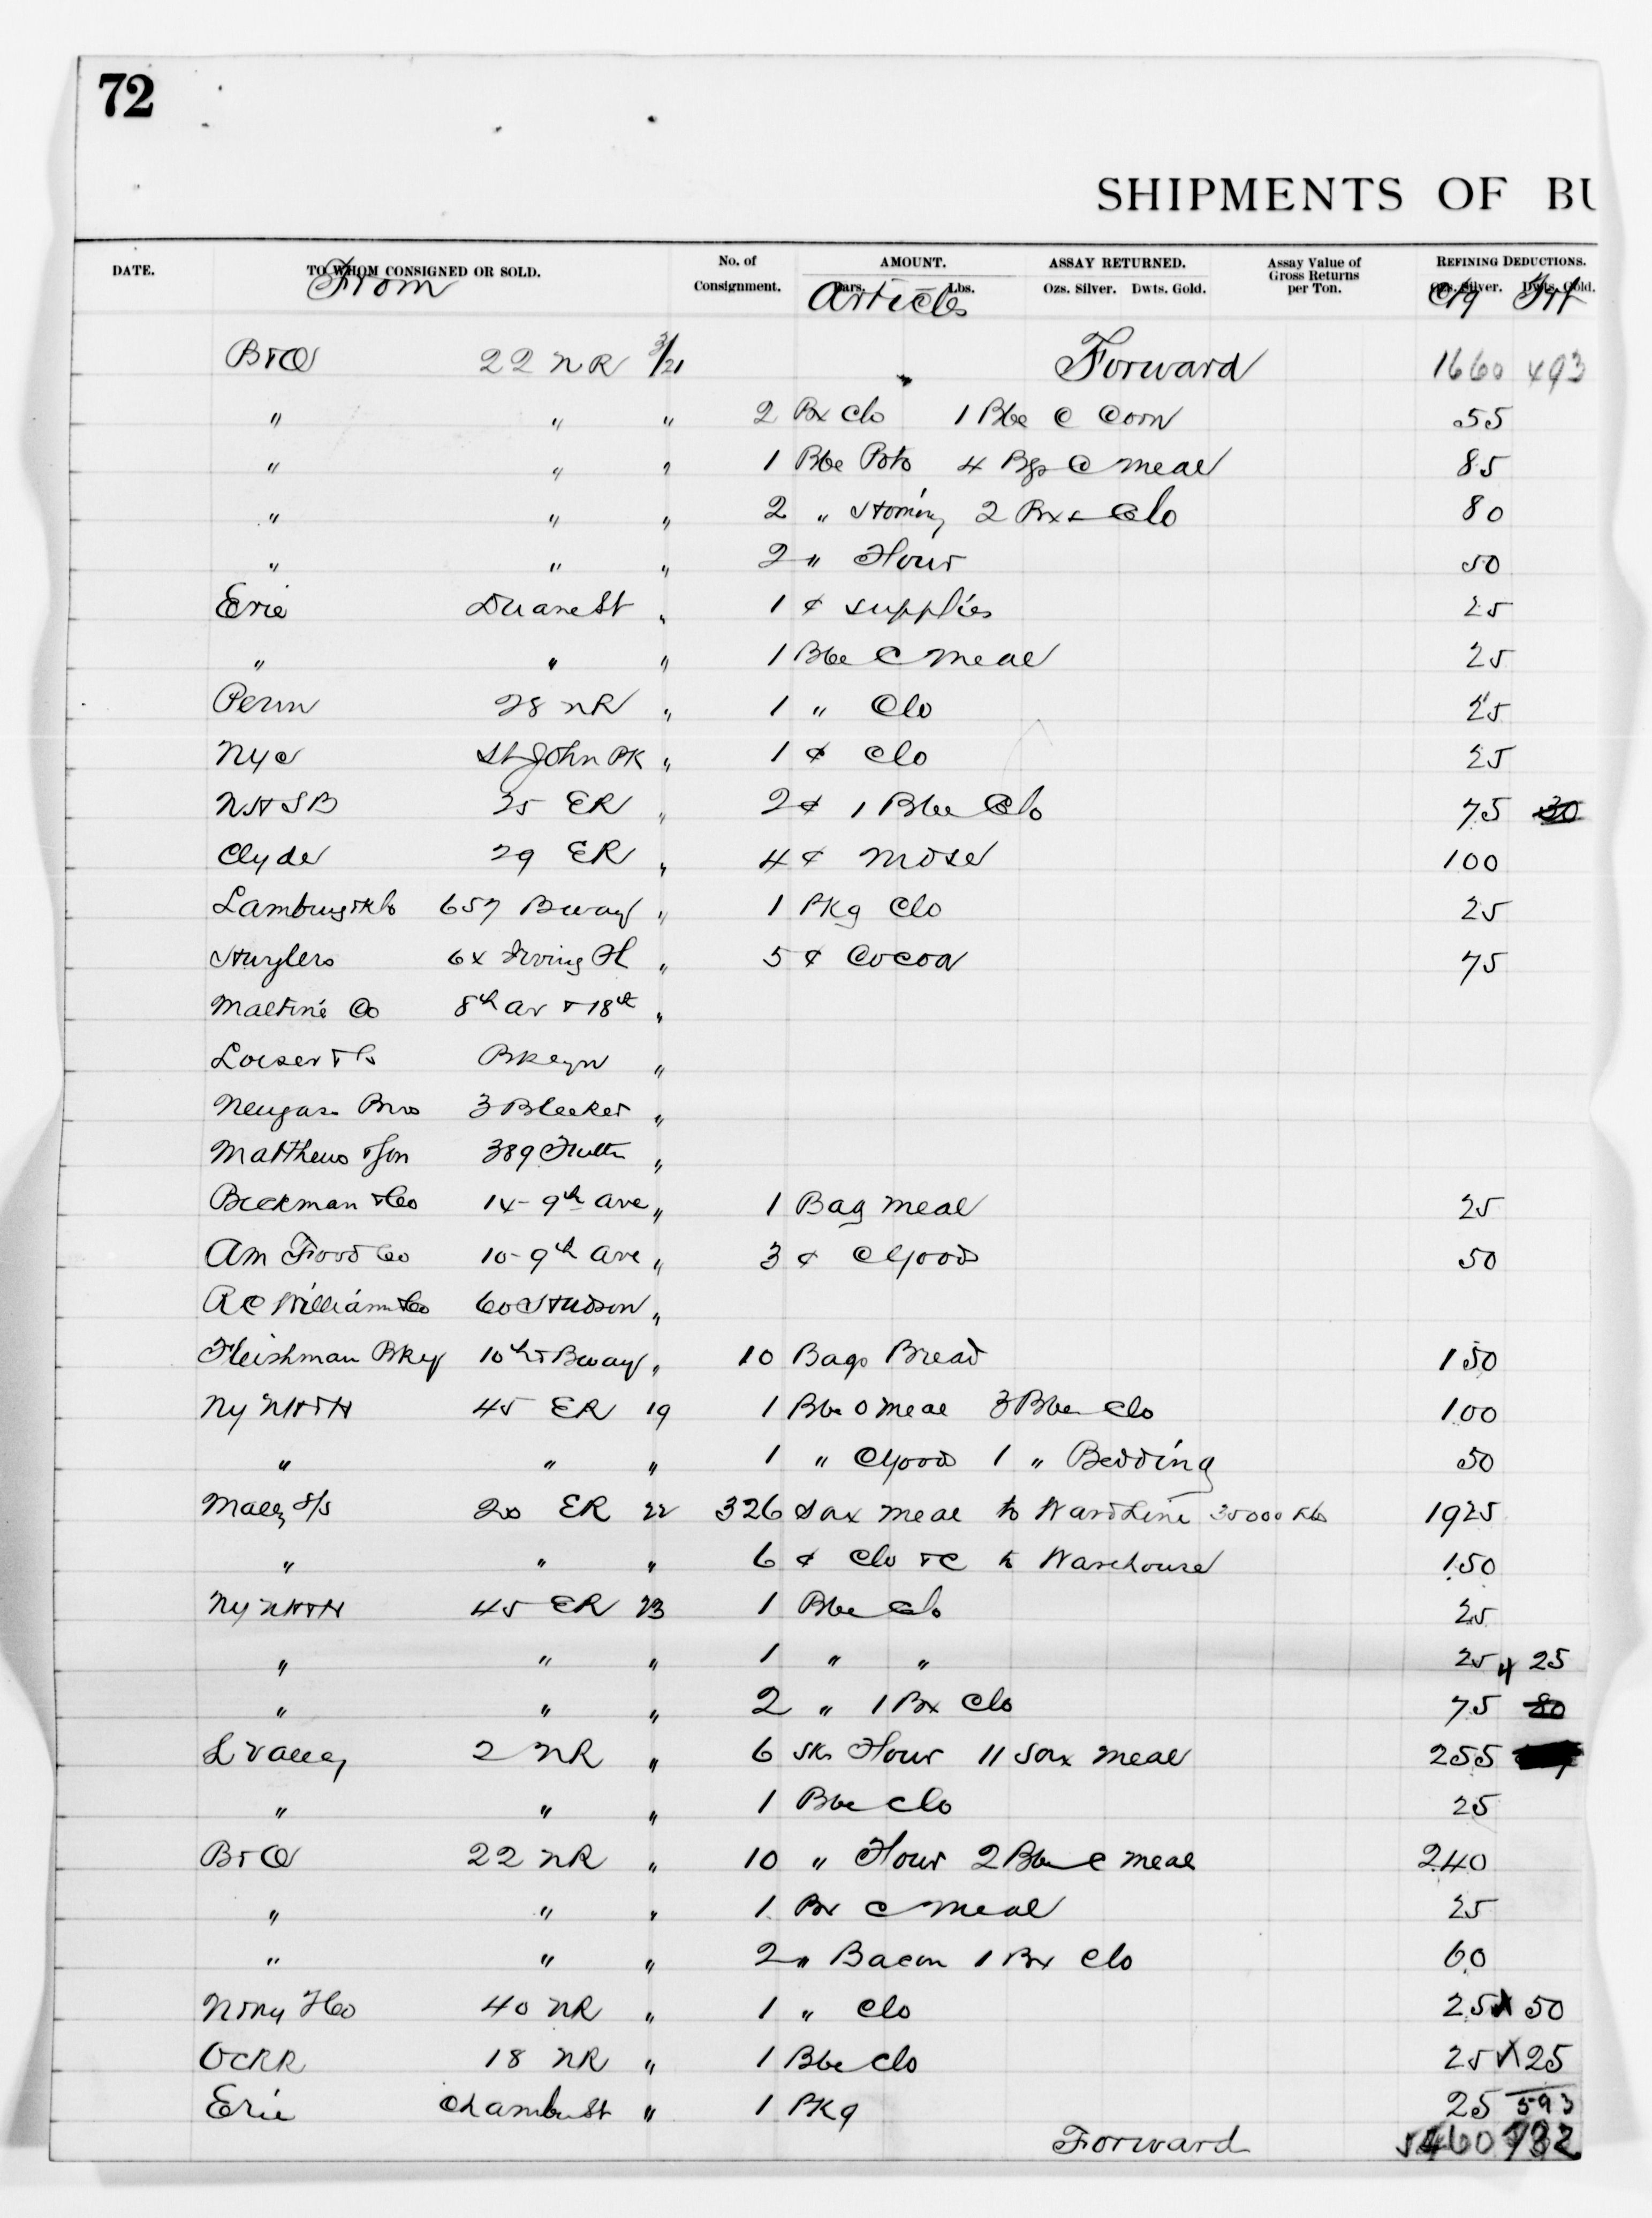 72
SHIPMENTS OF BU
DATE. TO WHOM CONSIGNED OR SOLD. No. of Consignment. AMOUNT. Bars. Lbs. ASSAY RETURNED. Ozs. Silver. Dwts. Gold. Assay Value of Gross Returns per Ton. REFINING DEDUCTIONS. Ozs. Silver. Dwts. Gold.
From Articles Ctg Frt
B+O 22 NR 3/21 Forward 1660 493
" " " 2 Bx Clo 1 Bbl C Corn 55
" " " 1 Bbl Pots 4 Bgs C Meal 85
" " " 2 " Hominy 2 Bxs Clo 80
" " " 2 " Flour 50
Erie Duane St " 1 ¢ supplies 25
" " " 1 Bbl C Meal 25
Penn 28 NR " 1 " Clo 25
NYC St John PK " 1 ¢ Clo 25
NHSB 25 ER " 2 ¢ 1 Bbl Clo 75 30
Clyde 29 ER " 4 ¢ Mdse 100
657 Bway " 1 Pkg Clo 25
Huylers 64 Irving Pl " 5 ¢ Cocoa 75
Maltine Co 8th av + 18th "
Loeser + Co Bklyn "
Neugass Bros 3 Bleeker "
Matthews + Son 389 Fulton "
Beekman + Co 14-9th Ave " 1 Bag Meal 25
Am Food Co 10-9th Ave " 3 ¢ C Goods 50
RC William + Co 60 Hudson "
Fleishman Bky 10th + Bway " 10 Bags Bread 150
NY NH + H 45 ER 19 1 Bbl O Meal 3 Bbl Clo 100
" " " 1 " C Goods 1 " Bedding 50
Mally S/S 20 ER 22 326 Sax Meal to Ward Line 35000 lbs 1925
" " " 6 ¢ Clo + C to Warehouse 150
NY NH + H 45 ER 23 1 Bbl Clo 25
" " " 1 " " 25 25
" " " 2 " 1 Bx Clo 75 80
L Valley 2 NR " 6 Sks Flour 11 Sax Meal 255
" " " 1 Bbl Clo 25
B+O 22 NR " 10 " Flour 2 Bbl C Meal 240
" " " 1 Bx C Meal 25
" " " 2 " Bacon 1 Bx Clo 60
40 NR " 1 " Clo 25 X 50
OCRR 18 NR " 1 Bbl Clo 25 X 25
Erie Chambers St " 1 Pkg 25 593
Forward 5460